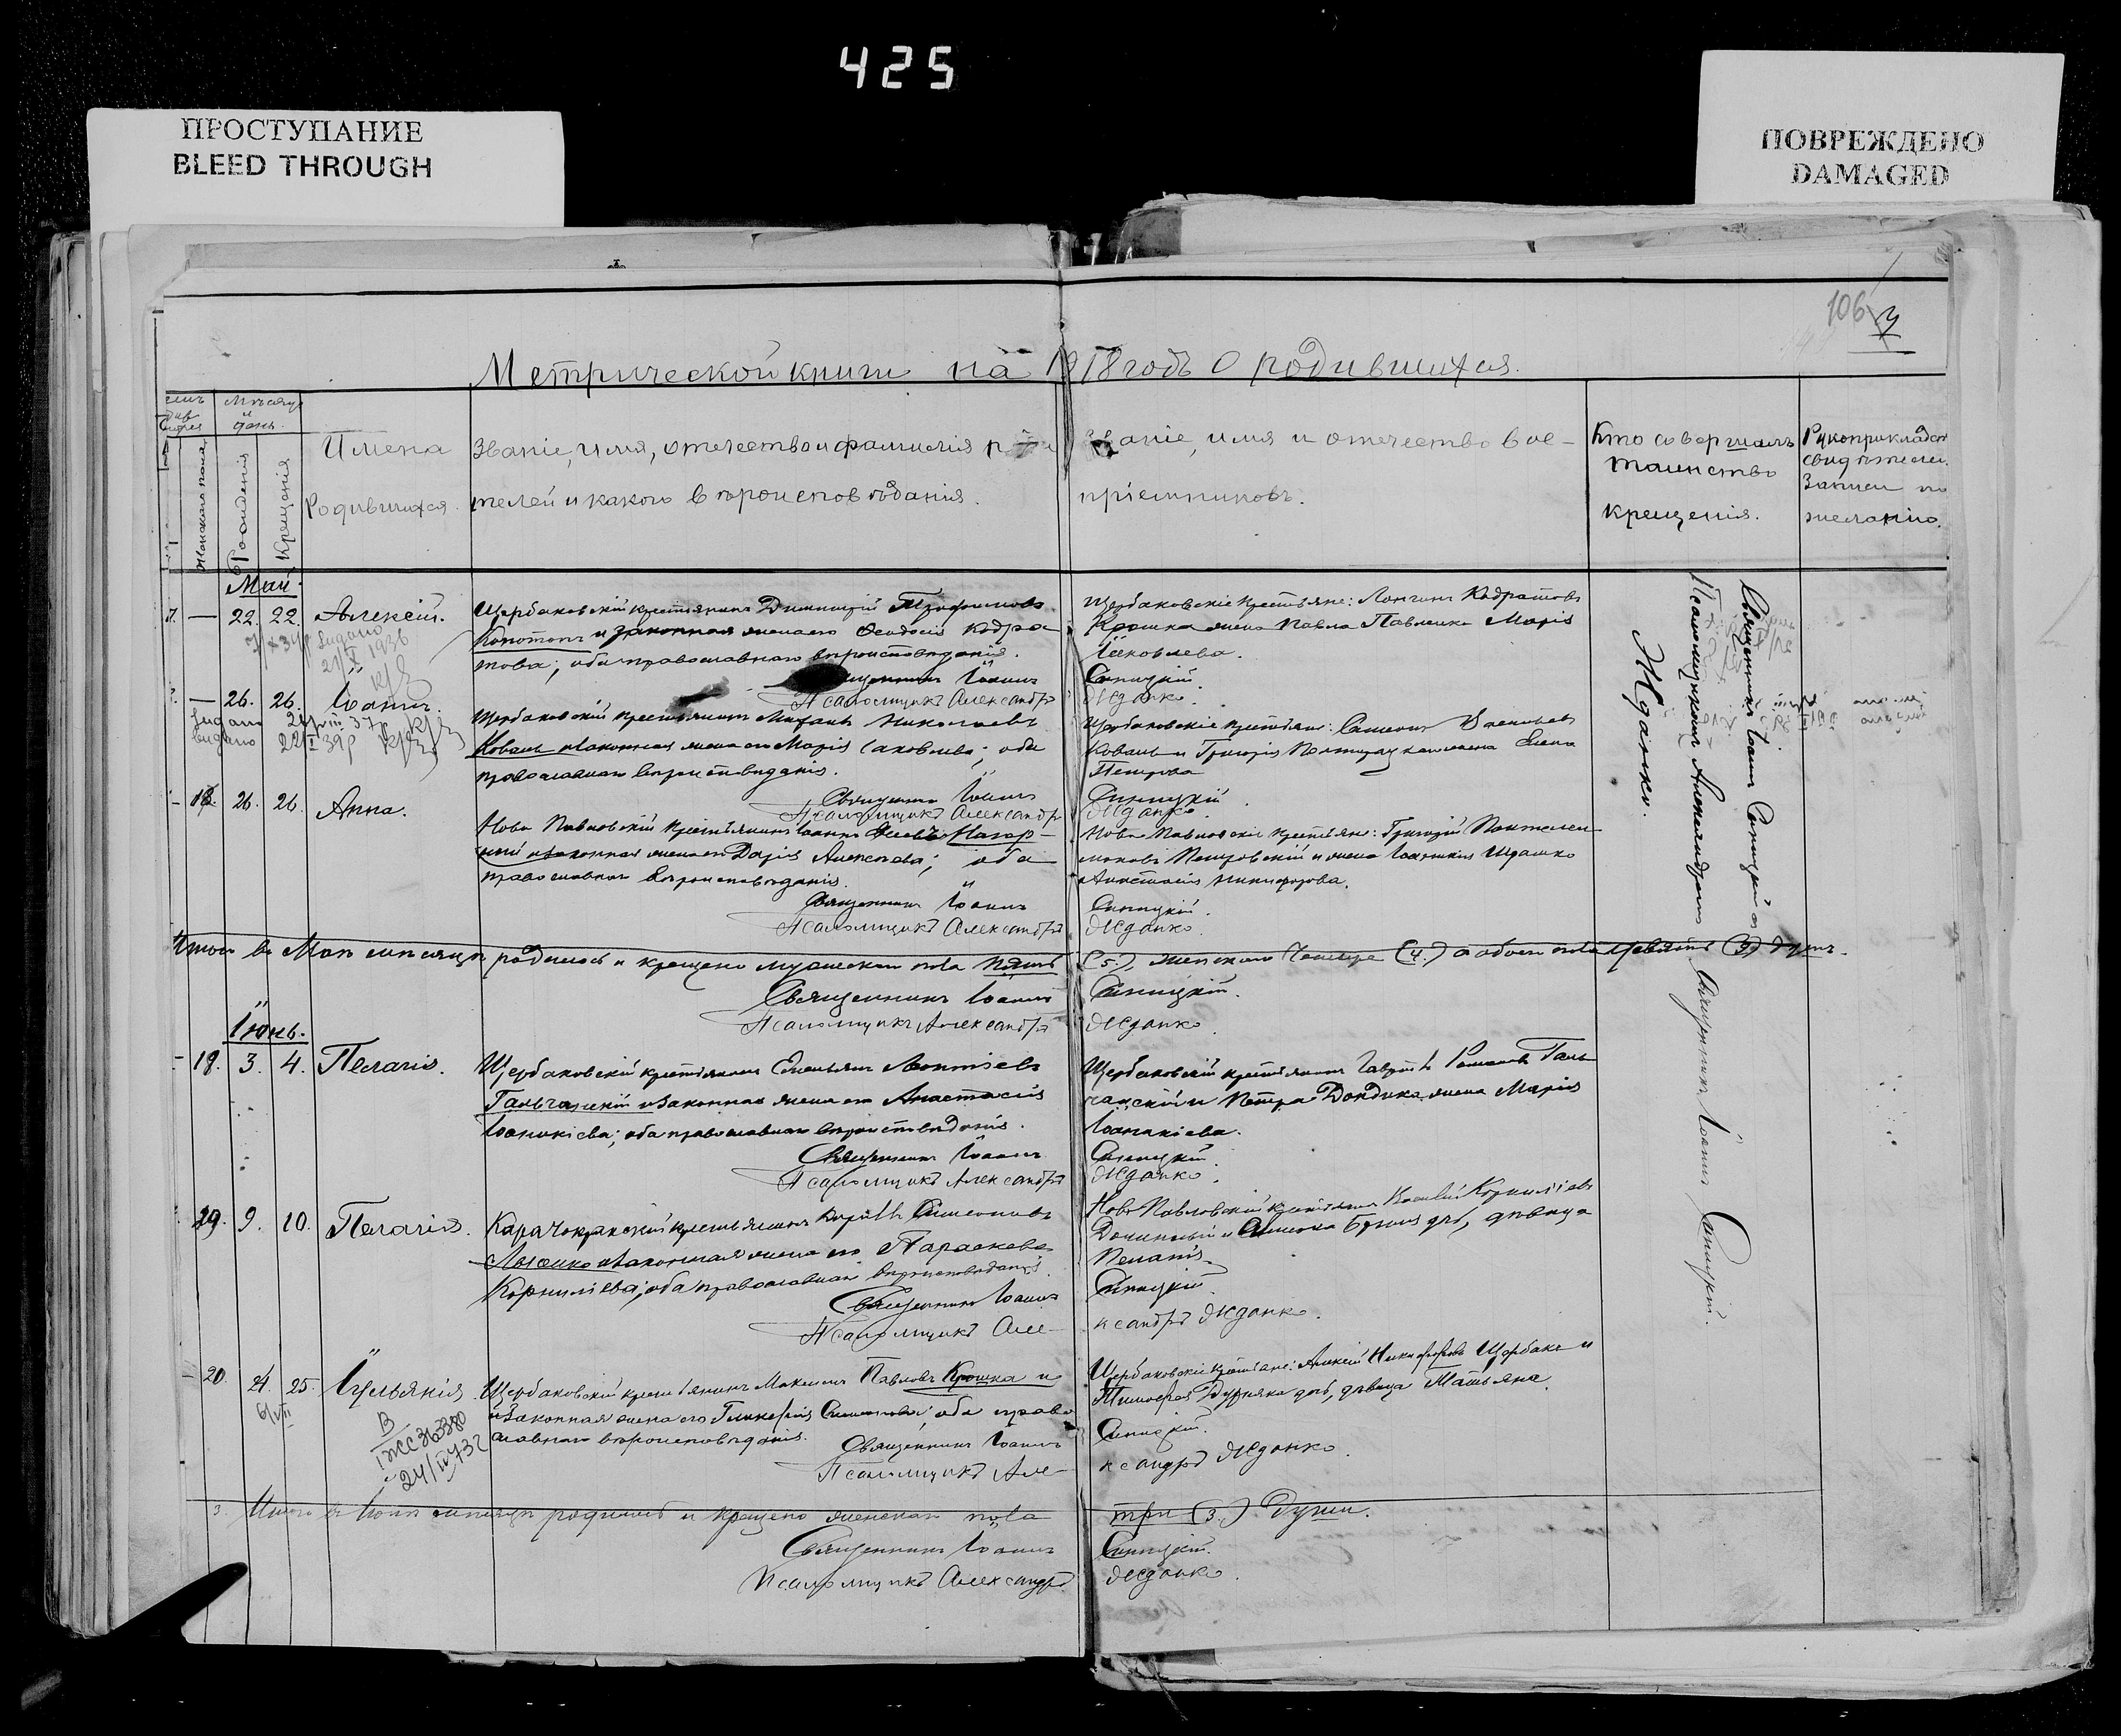 425
ПРОСТУПАНИЕ
BLEED THROUGH
ПОВРЕЖДЕНО
DAMAGED
106
Метрической книги на 1918 годъ О родившихся.
Мѣсяцъ
и
день.
Женскаго пола
Рожденія
Крещенія
Имена
Родившихся.
Званіе, имя, отчество и фамилія роди
телей и какого вѣроисповѣданія.
Званіе, имя и отчество вос-
пріемниковъ.
Кто совершалъ
таинство
крещенія.
Рукоприкладст
свидѣтелей
записи по
желанію.
Май.
— 22. 22. Алексій.
Щербаковскій крестьянинъ Димитрій Трофимовъ
Копотопъ и законная жена его Ѳеодосія Кодра
това; оба православнаго вѣроисповѣданія.
Священникъ Іоаннъ
Псаломщикъ Александръ
Щербаковскіе крестьяне: Лонгинъ Кодратовъ
Крошка жена Павла Павленко Марія
Іаковлева.
Синицкій
Жданко.
видано
21/X 1936
— 26. 26. Іоаннъ.
видано
видано
Щербаковскій крестьянинъ Михаилъ Николаевъ
Коваль и законная жена его Марія Іаковлева; оба
православнаго вѣроисповѣданія.
Священникъ Іоаннъ
Псаломщикъ Александръ
Щербаковскіе крестьяне: Симеонъ Васильевъ
Коваль и Григорія жена Елена
Петрова
Синицкій.
Жданко.
— 26. 26. Анна.
Ново Павловскій крестьянинъ Іоаннъ
и законная жена его Дарія Алексѣева; оба
православнаго вѣроисповѣданія.
Священникъ Іоаннъ
Псаломщикъ Александръ
Ново Павловскіе крестьяне: Григорій Пантелей
моновъ Петровскій и жена Іоанникія Ждашко
Анастасія Никифорова.
Синицкій.
Жданко.
Священникъ Іоаннъ Синицкій съ
Псаломщикомъ Александромъ
Жданко.
Итого въ Маѣ мѣсяцѣ родилось и крещено мужескаго пола пять
(5.), женскаго четыре (4.) а обоего пола девять (9) душъ.
Священникъ Іоаннъ
Псаломщикъ Александръ
Синицкій.
Жданко.
Іюнь.
18. 3. 4. Пелагія.
Щербаковскій крестьянинъ Емельянъ Леонтіевъ
Гальчанскій и законная жена его Анастасія
Іоаникіева; оба православнаго вѣроисповѣданія.
Священникъ Іоаннъ
Псаломщикъ Александръ
Щербаковскій крестьянинъ Гавріилъ Романовъ Галь
чанскій и Петра Дондика жена Марія
Іоаникіева.
Синицкій.
Жданко.
Священникъ Іоаннъ Синицкій.
19. 9. 10. Пелагія.
Карачокракскій крестьянинъ Кириллъ Симеоновъ
Лысенко и законная жена его Параскева
Корниліева; оба православнаго вѣроисповѣданія.
Священникъ Іоаннъ
Псаломщикъ Але-
Ново Павловскій крестьянинъ Василій Корниліевъ
и Симеона дочь, дѣвица
Пелагія.
Синицкій.
ксандръ Жданко.
20. 24. 25. Іуліанія
24/IV 732
Щербаковскій крестьянинъ Максимъ Павловъ Крошка и
законная жена его Гликерія Симеонова; оба право
славнаго вѣроисповѣданія.
Священникъ Іоаннъ
Псаломщикъ Але-
Щербаковскіе крестьяне: Алексій Никифоровъ Щербакъ и
Тимофея Дурняка дочь, дѣвица Татьяна.
Синицкій.
ксандръ Жданко.
3. Итого въ Іюнѣ мѣсяцѣ родилось и крещено женскаго пола
три (3.) Души.
Священникъ Іоаннъ
Псаломщикъ Александръ
Синицкій.
Жданко.